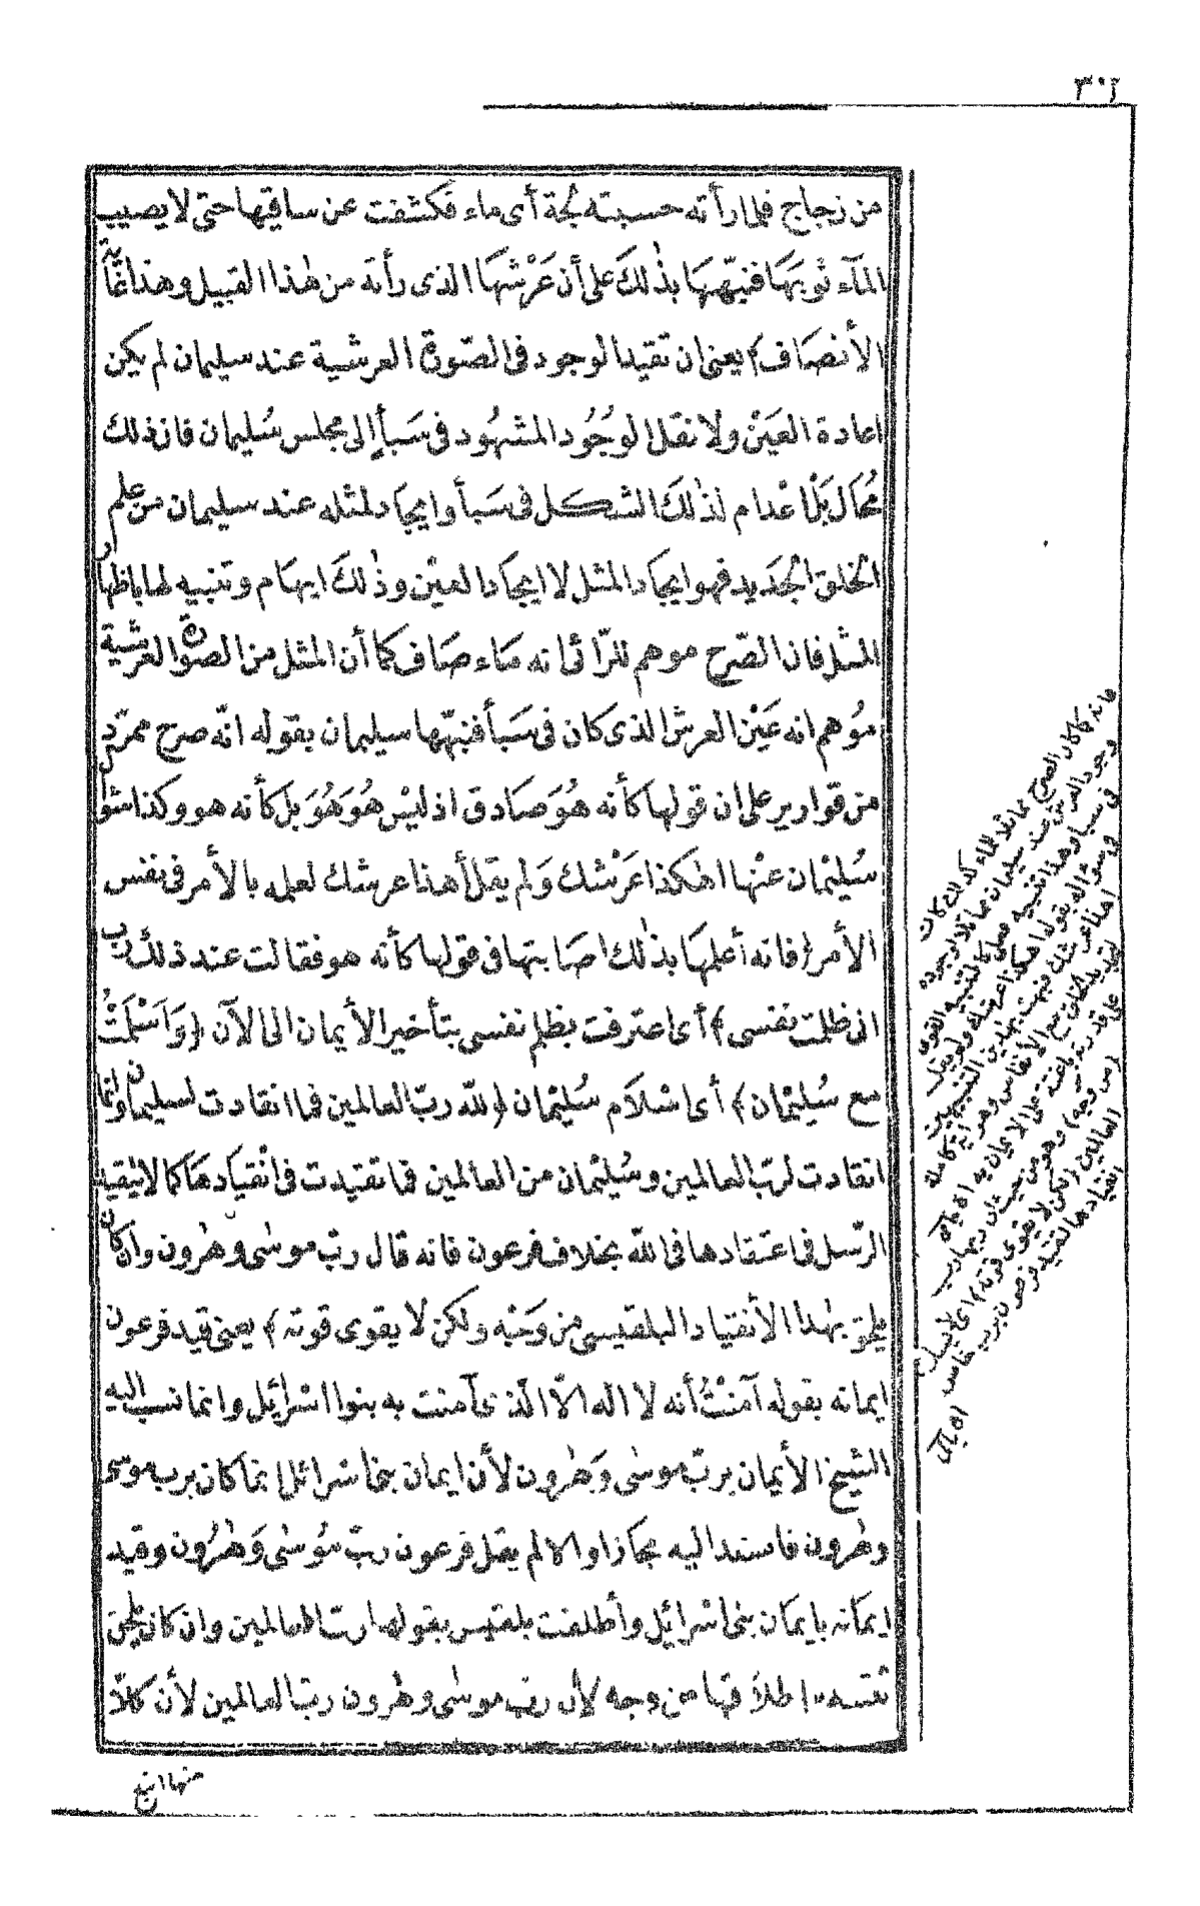 من زجاج فلما رأته حسبته لجة أى ماء فكشفت عن ساقيها حتى لا يصيب
المآء ثوبَهَا فنبّههَا بذٰلكَ على أن عَرْشهَا الذى رأته من هٰذا القبيل وهذا غاية
الأنصاف﴾ يعنى ان تقيد الوجود فى الصّورة العرشية عند سليمان لم يكن
اعادة العَيْنْ ولا نقل الوجُود المشهُود فى سَبأ إلى مجلس سُليمان فان ذلك
مُحَال بَلْ اعْدام لذٰلكَ الشكل فى سَبأ وايجاد لمثله عند سليمان من علم
الخلق الجَديد فهو ايجاد المثل لا ايجاد العيْن وذٰلكَ ايهَام وتنبيه لها باظهار
المثل فان الصّرح موهم للرّائى انه مَاء صَاف كما أن المثل من الصّورة العرشية
مُوهم انه عَيْن العرش الذى كان فى سَبأ فنبّهها سيليمان بقوله انّه صرح ممرّد
من قوارير على ان قولها كأنه هُوَ صَادق اذ ليسْ هُوَ هُوَ بل كأنه هو وكذا سئوال
سُليْمان عنْها اهٰكذا عَرْشك وَلم يقل أهذا عرشك لعلمه بالأمر فى نفس
الأمر ﴿فانه أعلمهَا بذٰلك اصَابتها فى قولها كأنه هو فقالت عند ذلك ربّ
انى ظلمت نفسى﴾ أى اعترفت بظلم نفسى بتأخير الأيمان الى الآن ﴿وَاَسْلَمَتُ
مع سُليْمان﴾ أى اسْلاَم سُليْمان ﴿للّه ربّ العالمين فما انقادت لسليمان وانما
انقادت لربّ العالمين وسُليْمان من العالمين فما تقيّدت فى انْقيادهَا كما لا يتقيد
الرّسل فى اعتقادها فى اللّه بخلاف فرعون فانه قال ربّ موسٰى وهٰرون وان كان
يلحق بهٰذا الأنقياد البلقيسى من وَجْه ولكن لا يقوى قوته﴾ يعنى قيد فرعون
ايمانه بقوله آمنْتُ أنه لا اله الاّ الّذى آمنت به بنوا اسْرائيل وانما نسب اليه
الشيخ الأيمان بربّ موسٰى وَهٰرون لأن ايمان بنى اسْرائل انما كان برب موسى
وهٰرون فاسند اليه مجازا والا لم يقل فرعون ربّ مُوسٰى وَهٰرُون وقيد
ايمَانه بايمَان بنى اسْرائيل وأطلقت بلقيس بقولها ربّ العالمين وان كان يلحق
تقييده اطلاَقها من وجه لأن ربّ موسٰى وهٰرون ربّ العالمين لأن كلاّ
منها اتبع
فانه كما كان الصرح مماثلا للماء كذلك كان
وجود العرش عند سليمان مماثلا لوجوده
فى سبأ وهذا تنبيه فعلى كالتنبيه القولى
فى سؤاله بقوله اهكذا عرشك ولم يقل
اهذا عرشك فنبهت بهذين التنبيهين